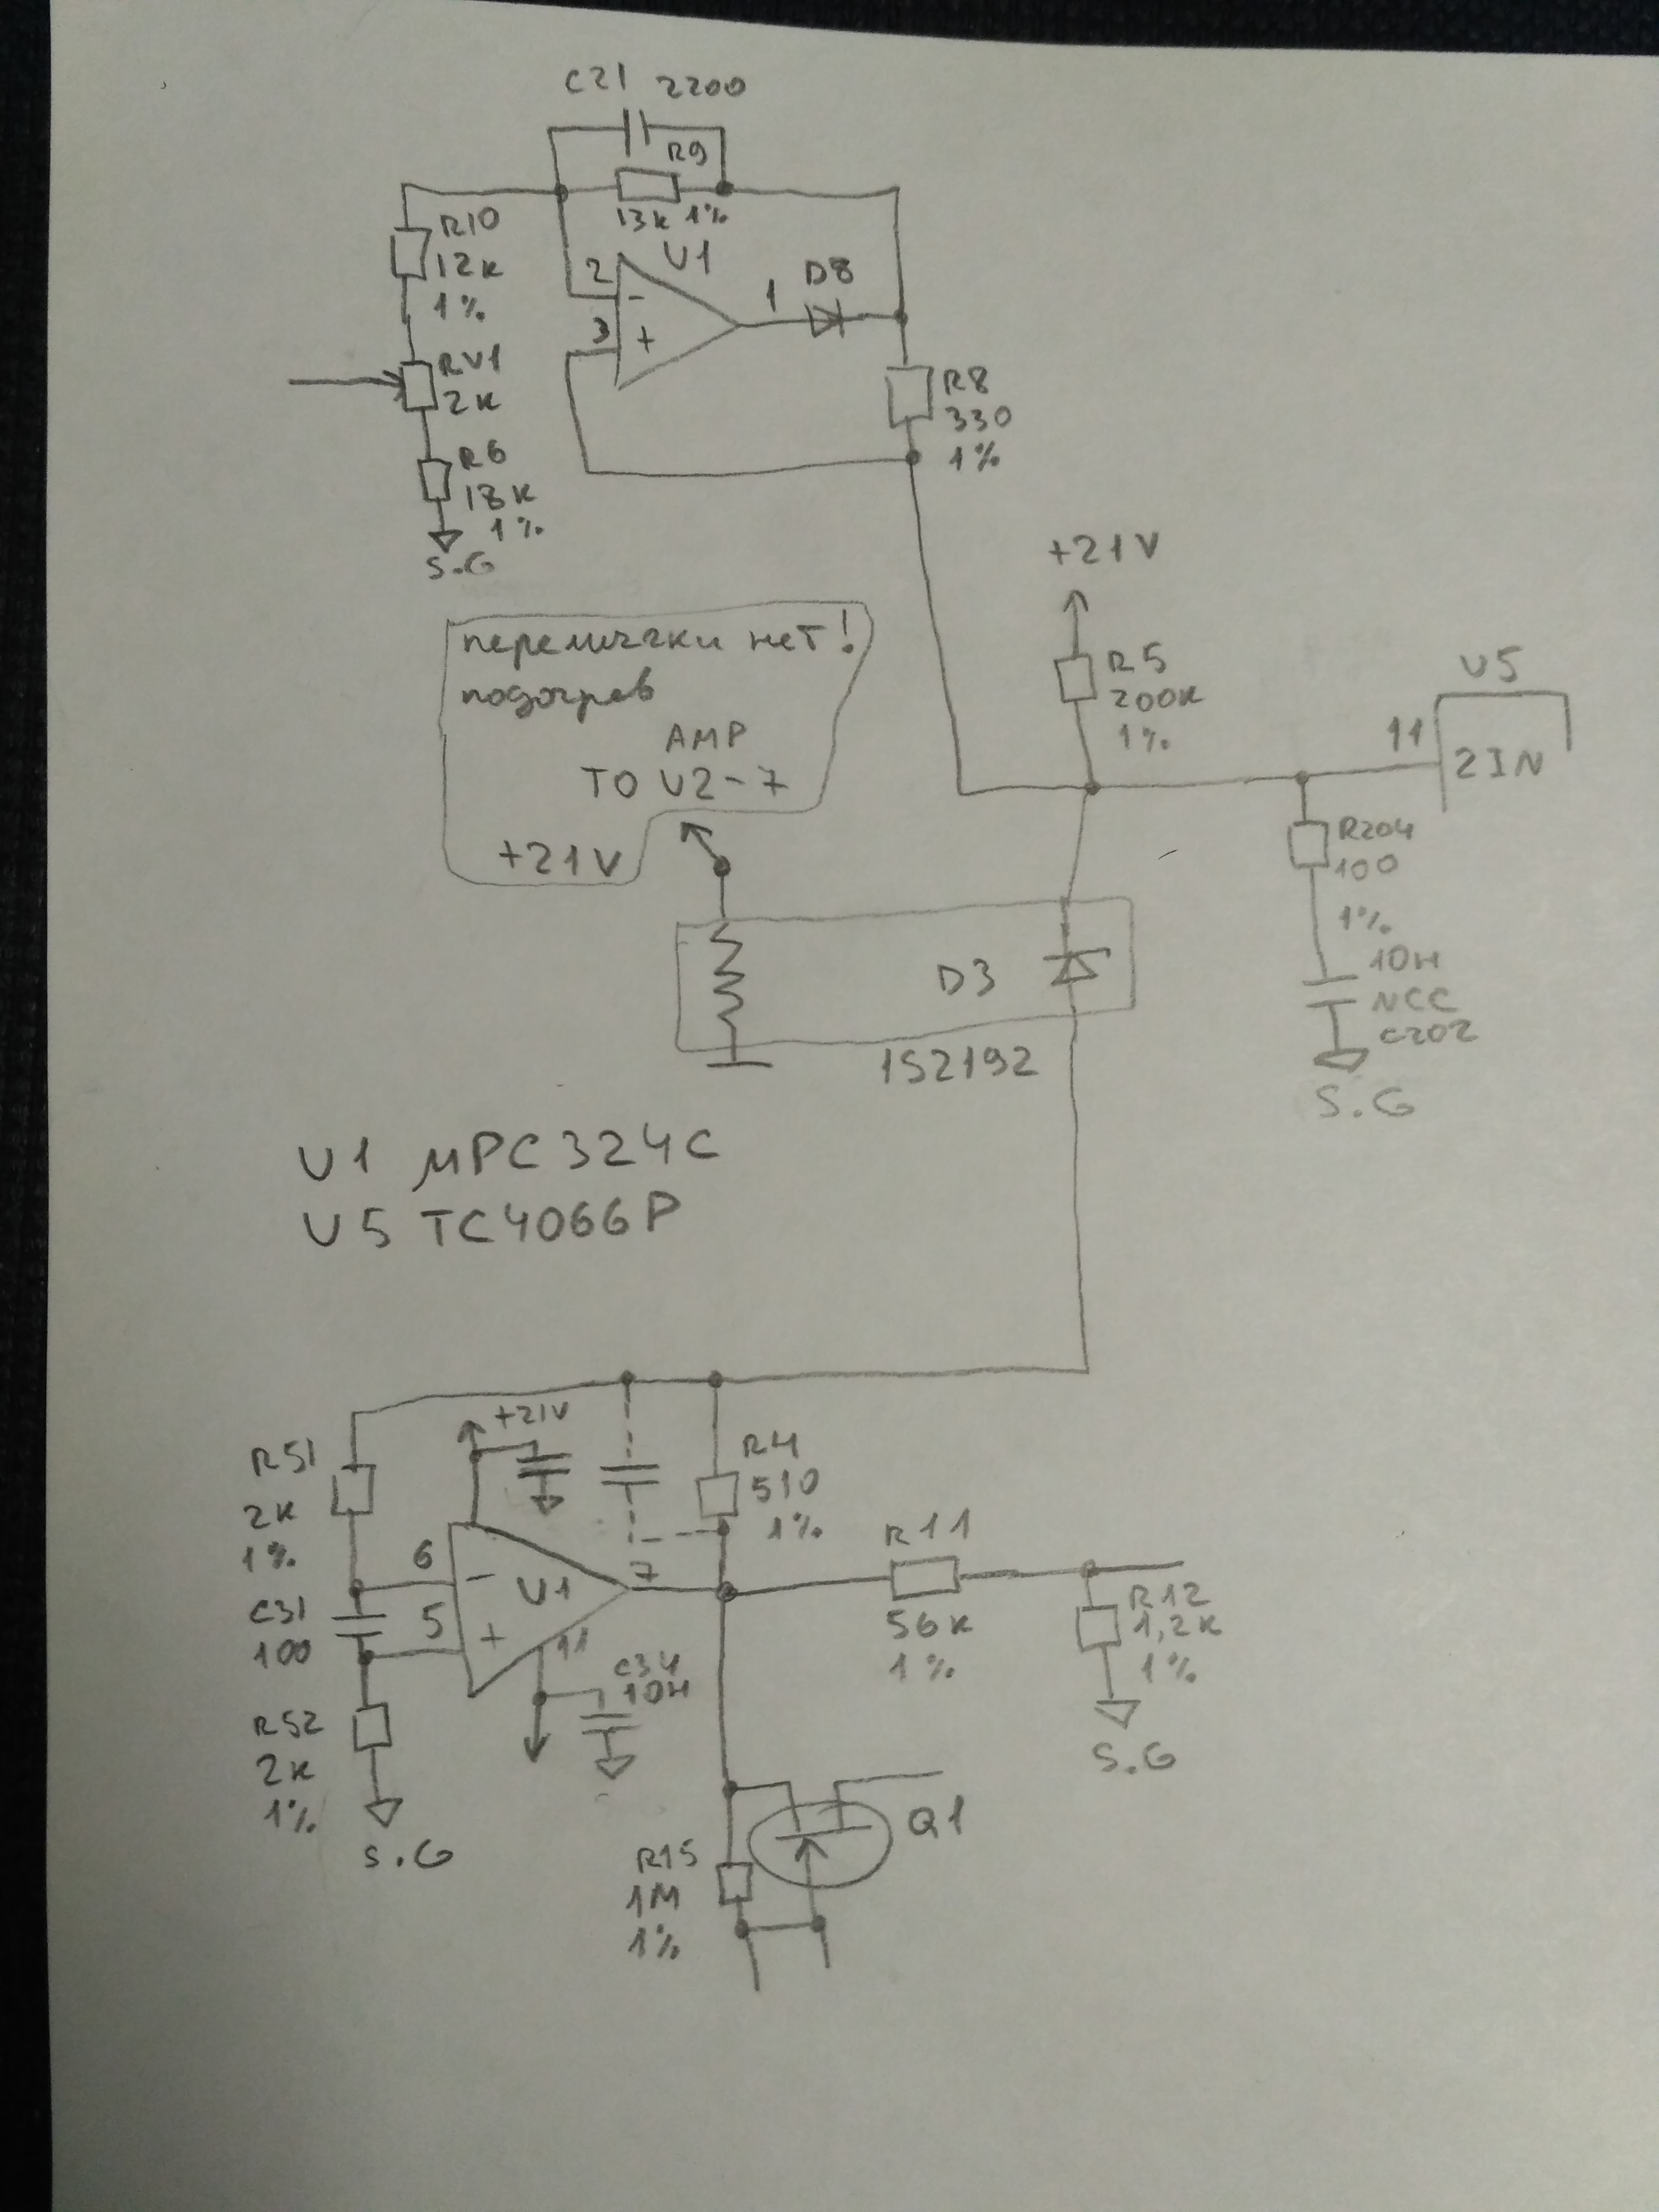 C21 2200
R9
13к 1%
R10
12к
1%
U1
2
-
3
+
1
D8
RV1
2к
R8
330
1%
R6
18к
1%
S.G
+21V
перемычки нет!
подогрев
AMP
TO U2-7
+21V
R5
200к
1%
U5
11
2IN
R204
100
1%
10н
NCC
C202
S.G
D3
1S2192
U1 µPC324C
U5 TC4066P
+21V
R51
2к
1%
R4
510
1%
6
-
U1
7
5
+
11
C31
100
R11
56к
1%
R12
1,2к
1%
S.G
C34
10н
R52
2к
1%
S.G
Q1
R15
1М
1%